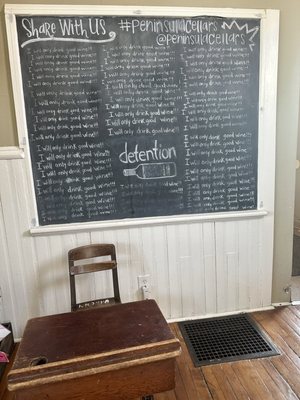 Share With Us
#PeninsulaCellars
@peninsulacellars
I will only drink good wine!!!
I will only drink good wine!!!
I will only drink good wine!!!
I will only drink good wine!!!
I will only drink good wine!!!
I will only drink good wine!!!
I will only drink good wine!!!
I will only drink good wine!!!
I will only drink good wine!!!
I will only drink good wine!!!
I will only drink good wine!!!
I will only drink good wine!!!
I will only drink good wine!!!
I will only drink good wine!!!
I will only drink good wine!!!
I will only drink good wine!!!
I will only drink good wine!!!
I will only drink good wine!!!
I will only drink good wine!!!
I will only drink good wine!!!
I will only drink good wine!!!
I will only drink good wine!!!
I will only drink good wine!!!
I will only drink good wine!!!
detention
I will only drink good wine!!!
I will only drink good wine!!!
I will only drink good wine!!!
I will only drink good wine!!!
I will only drink good wine!!!
I will only drink good wine!!!
I will only drink good wine!!!
I will only drink good wine!!!
I will only drink good wine!!!
I will only drink good wine!!!
I will only drink good wine!!!
I will only drink good wine!!!
I will only drink good wine!!!
I will only drink good wine!!!
I will only drink good wine!!!